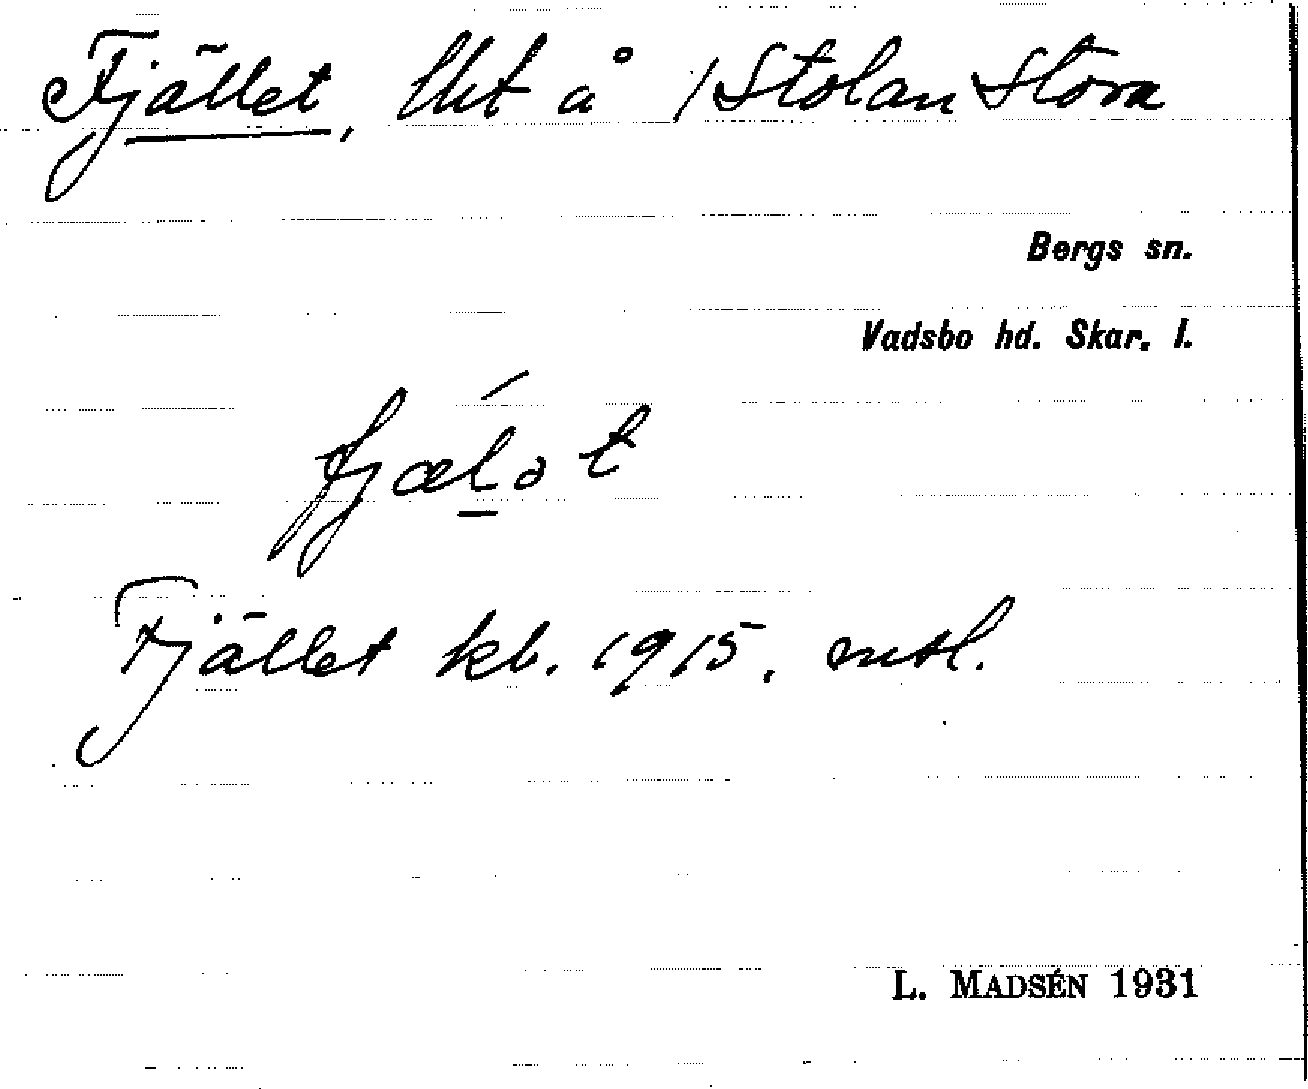 Fjället, lht å /Stolan Stora
Bergs sn.
Vadsbo hd. Skar. l.
fjæĺət
Fjället kb. 1915, mtl.
L. MADSÉN 1931